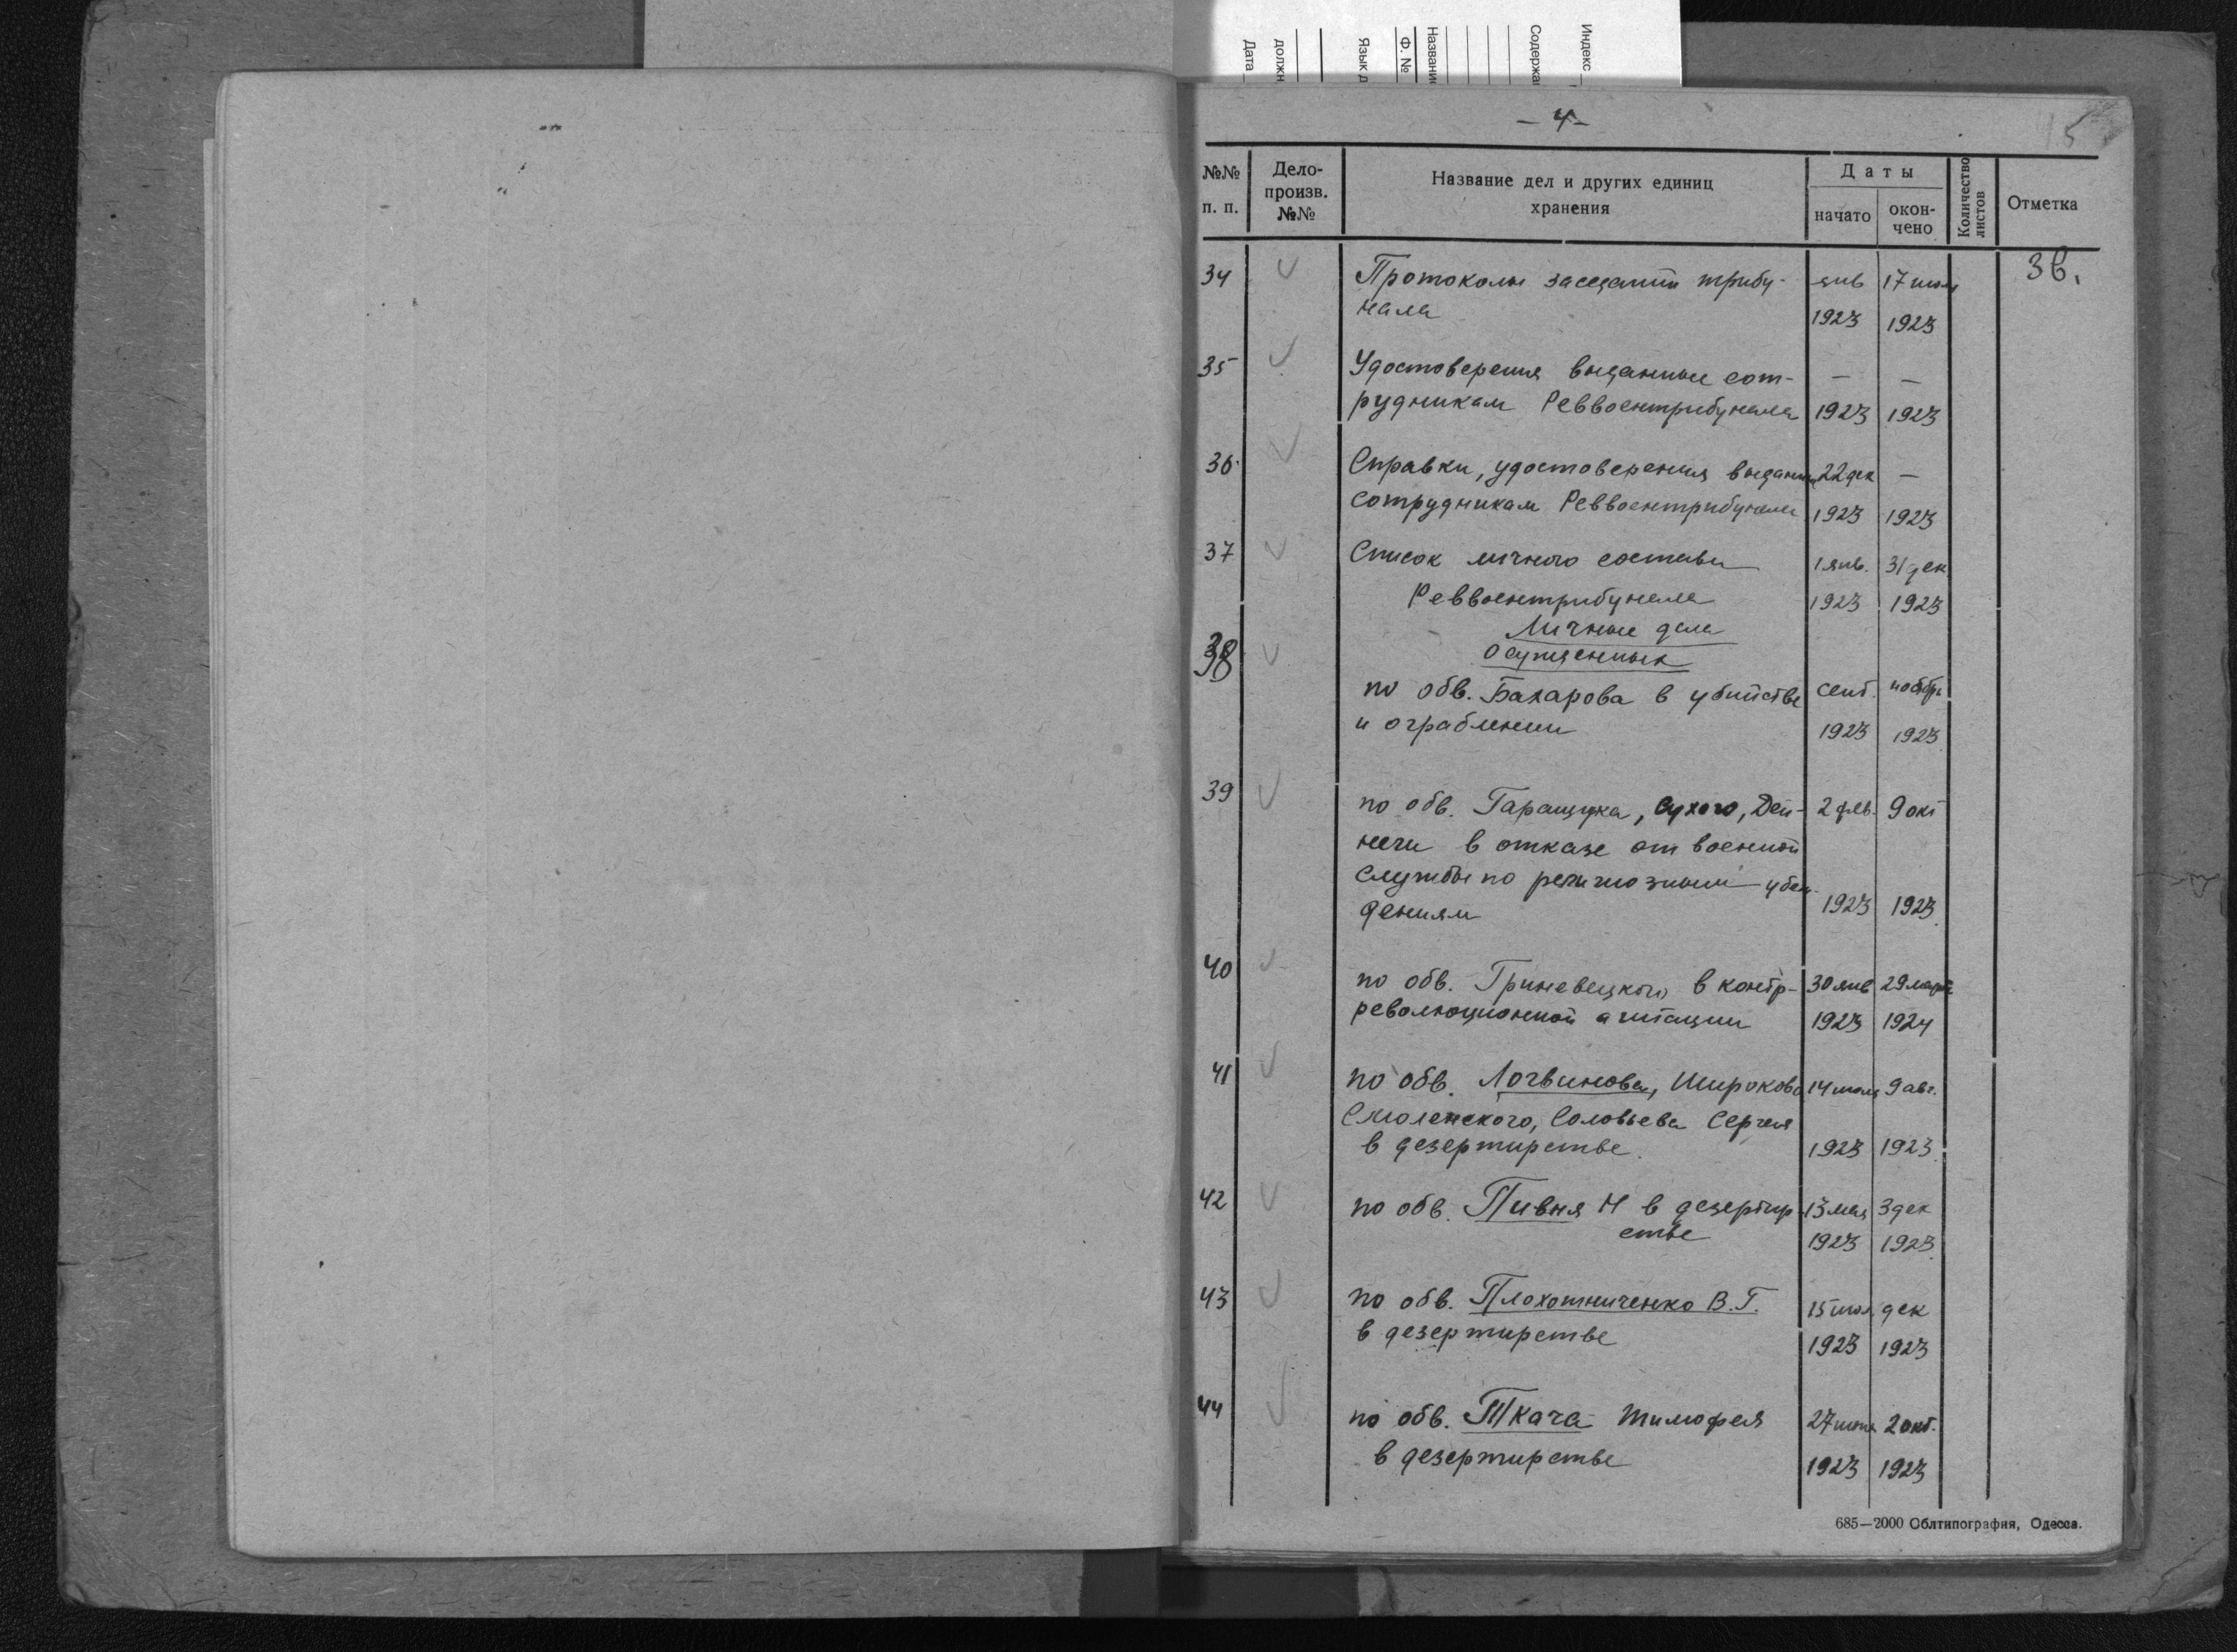 Индекс
Содержа
Названи
Ф. №
Язык д
должн
Дата
— 4 —
15
№№ п. п.
Дело-произв. №№
Название дел и других единиц хранения
Даты
начато
окон-чено
Количество листов
Отметка
34 Протоколы заседаний трибу- янв 17 июля 3 в.
нала 1923 1923
35 Удостоверения выданные сот- — —
рудникам Реввоентрибунала 1923 1923
36 Справки, удостоверения выданные 22 дек —
сотрудникам Реввоентрибунала 1923 1923
37 Список личного состава 1 янв. 31 дек
Реввоентрибунала 1923 1923
Личные дела
38 осужденных
по обв. Бахарова в убийстве сент. ноябрь
и ограблении 1923 1923
39 по обв. Таращука, Сухого, Дей- 2 фев. 9 окт
неги в отказе от военной
службы по религиозным убеж-
дениям 1923 1923
40 по обв. Гриневецкого в контр- 30 янв 29 марта
революционной агитации 1923 1924
41 по обв. Логвинова, Широкова 14 июля 9 авг.
Смоленского, Соловьева Сергея
в дезертирстве. 1923 1923
42 по обв. Пивня Н в дезертир 13 мая 3 дек
стве 1923 1923
43 по обв. Плохотниченко В.Г. 15 июл дек
в дезертирстве 1923 1923
44 по обв. Ткача Тимофея 27 июня 2 окт.
в дезертирстве 1923 1923
685—2000 Облтипография, Одесса.